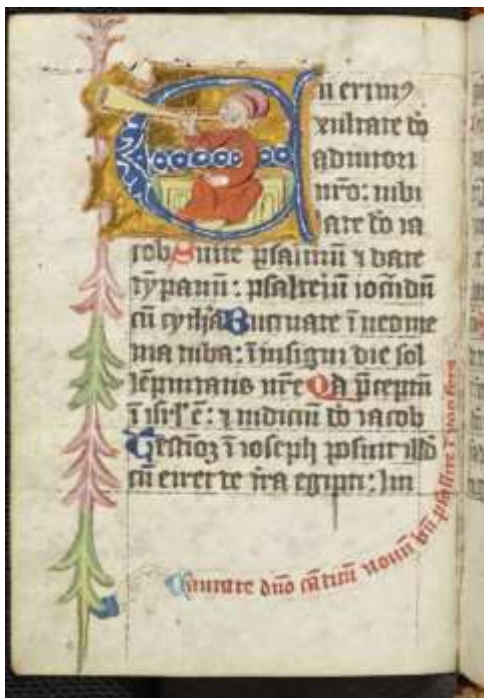 E
xultate do
adiutori
nr̄o: iubi
late do ia
cob Sumite psalmū ⁊ date
tȳpanū: psalteriū iocūdū
cū cythā Buccinate ī neome
nia tuba: ī insigni die sol
lēpnitatis ur̄e Qa p̄ceptū
ī isr̄l ē: ⁊ iudiciū do iacob
Testimoꝫ ī ioseph posuit illd̄
cū exiret de t̄ra egipti: lin
Cantate dn̄o cāticū nouū bn̄ psallite ī